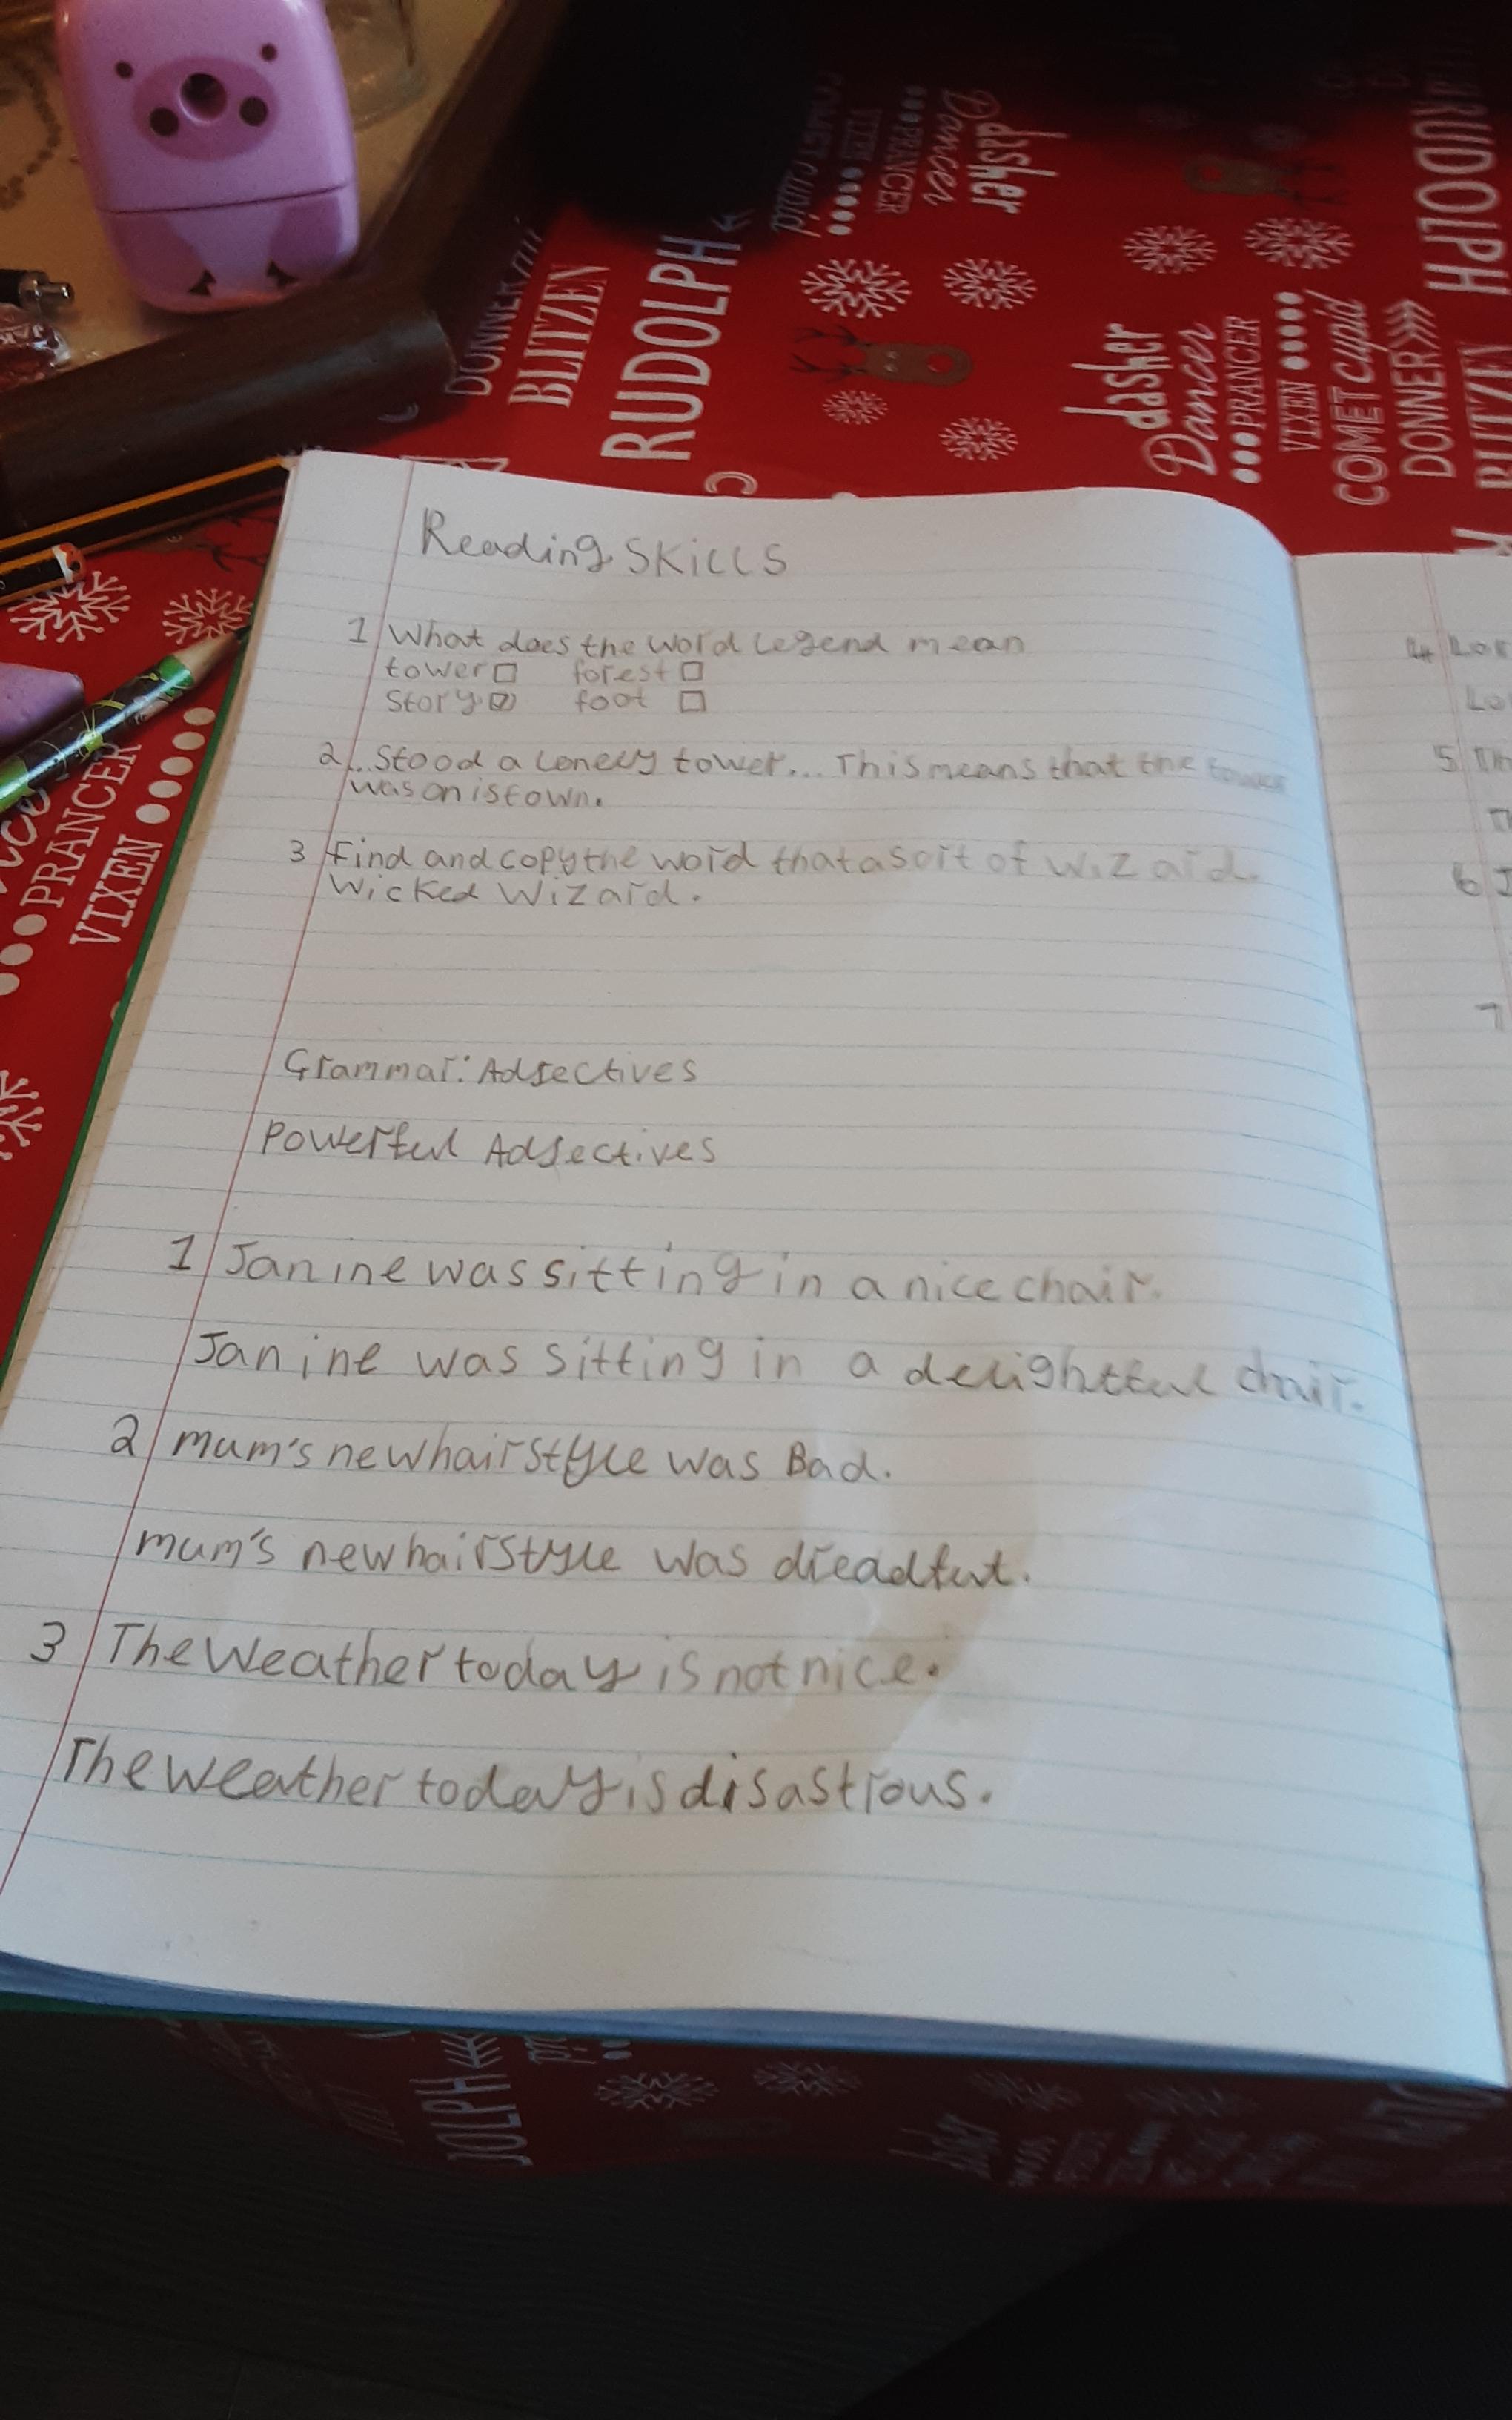 Reading SKills
1 What does the word Legend mean
tower☐ forest ☐
Story☑ foot ☐
2 ...Stood a Lonely tower... This means that the tower
was on istown.
3 find and copy the word that a sort of wizard.
Wicked Wizard.
Grammar: Adjectives
Powerful Adjectives
1 Janine was sitting in a nice chair.
Janine was sitting in a delightful chair.
2 mum's new hairstyle was Bad.
mum's new hairstyle was dreadful.
3 The weather today is not nice.
The weather today is disastrous.
4
5
6
7
DONNER
BLITZEN
RUDOLPH
COMET cupid
VIXEN
PRANCER
Dancer
dasher
dasher
Dancer
PRANCER
VIXEN
COMET cupid
DONNER
BLITZEN
RUDOLPH
PRANCER
VIXEN